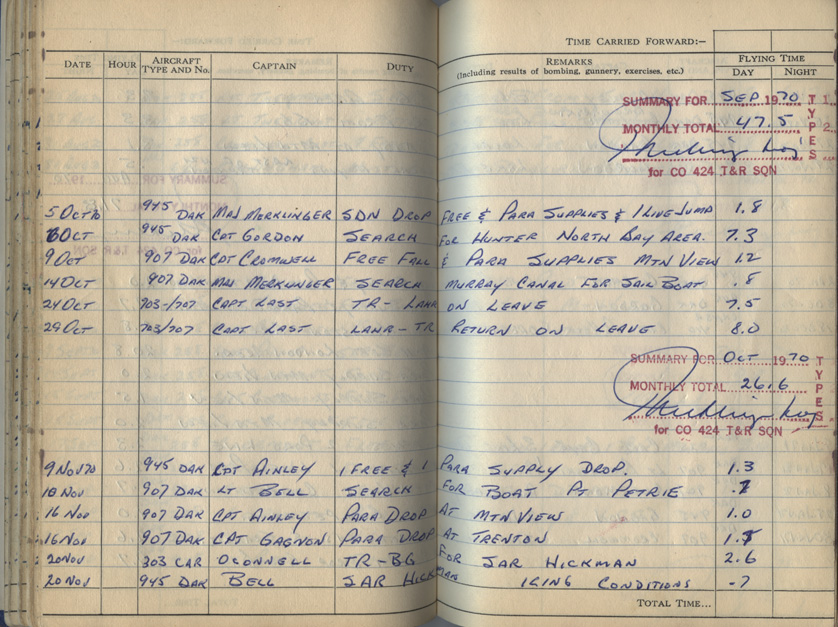 TIME CARRIED FORWARD:—
DATE HOUR AIRCRAFT TYPE AND No. CAPTAIN DUTY REMARKS (Including results of bombing, gunnery, exercises, etc.) FLYING TIME DAY NIGHT
SUMMARY FOR SEP 1970 TYPES 1
MONTHLY TOTAL 47.5 2
for CO 424 T&R SQN
5 Oct 70 945 DAK MAJ MERKLINGER SDN DROP FREE & PARA SUPPLIES & 1 LIVE JUMP 1.8
6 Oct 945 DAK CPT GORDON SEARCH FOR HUNTER NORTH BAY AREA. 7.3
9 Oct 907 DAK CPT CROMWELL FREE FALL & PARA SUPPLIES MTN VIEW 1.2
14 Oct 907 DAK MAJ MERKLINGER SEARCH MURRAY CANAL FOR SAIL BOAT .8
24 Oct 703-/707 CAPT LAST TR- LAHR ON LEAVE 7.5
29 Oct 703/707 CAPT LAST LAHR-TR RETURN ON LEAVE 8.0
SUMMARY FOR OCT 1970 TYPES
MONTHLY TOTAL 26.6
for CO 424 T&R SQN
9 Nov 70 945 DAK CPT AINLEY 1 FREE & 1 PARA SUPPLY DROP. 1.3
10 Nov 907 DAK LT BELL SEARCH FOR BOAT PT PETRIE
16 Nov 907 DAK CPT AINLEY PARA DROP AT MTN VIEW 1.0
16 Nov 907 DAK CPT GAGNON PARA DROP AT TRENTON
20 Nov 303 CAR OCONNELL TR-BG FOR SAR HICKMAN 2.6
20 Nov 945 DAK BELL SAR HICKMAN ICING CONDITIONS .7
TOTAL TIME...